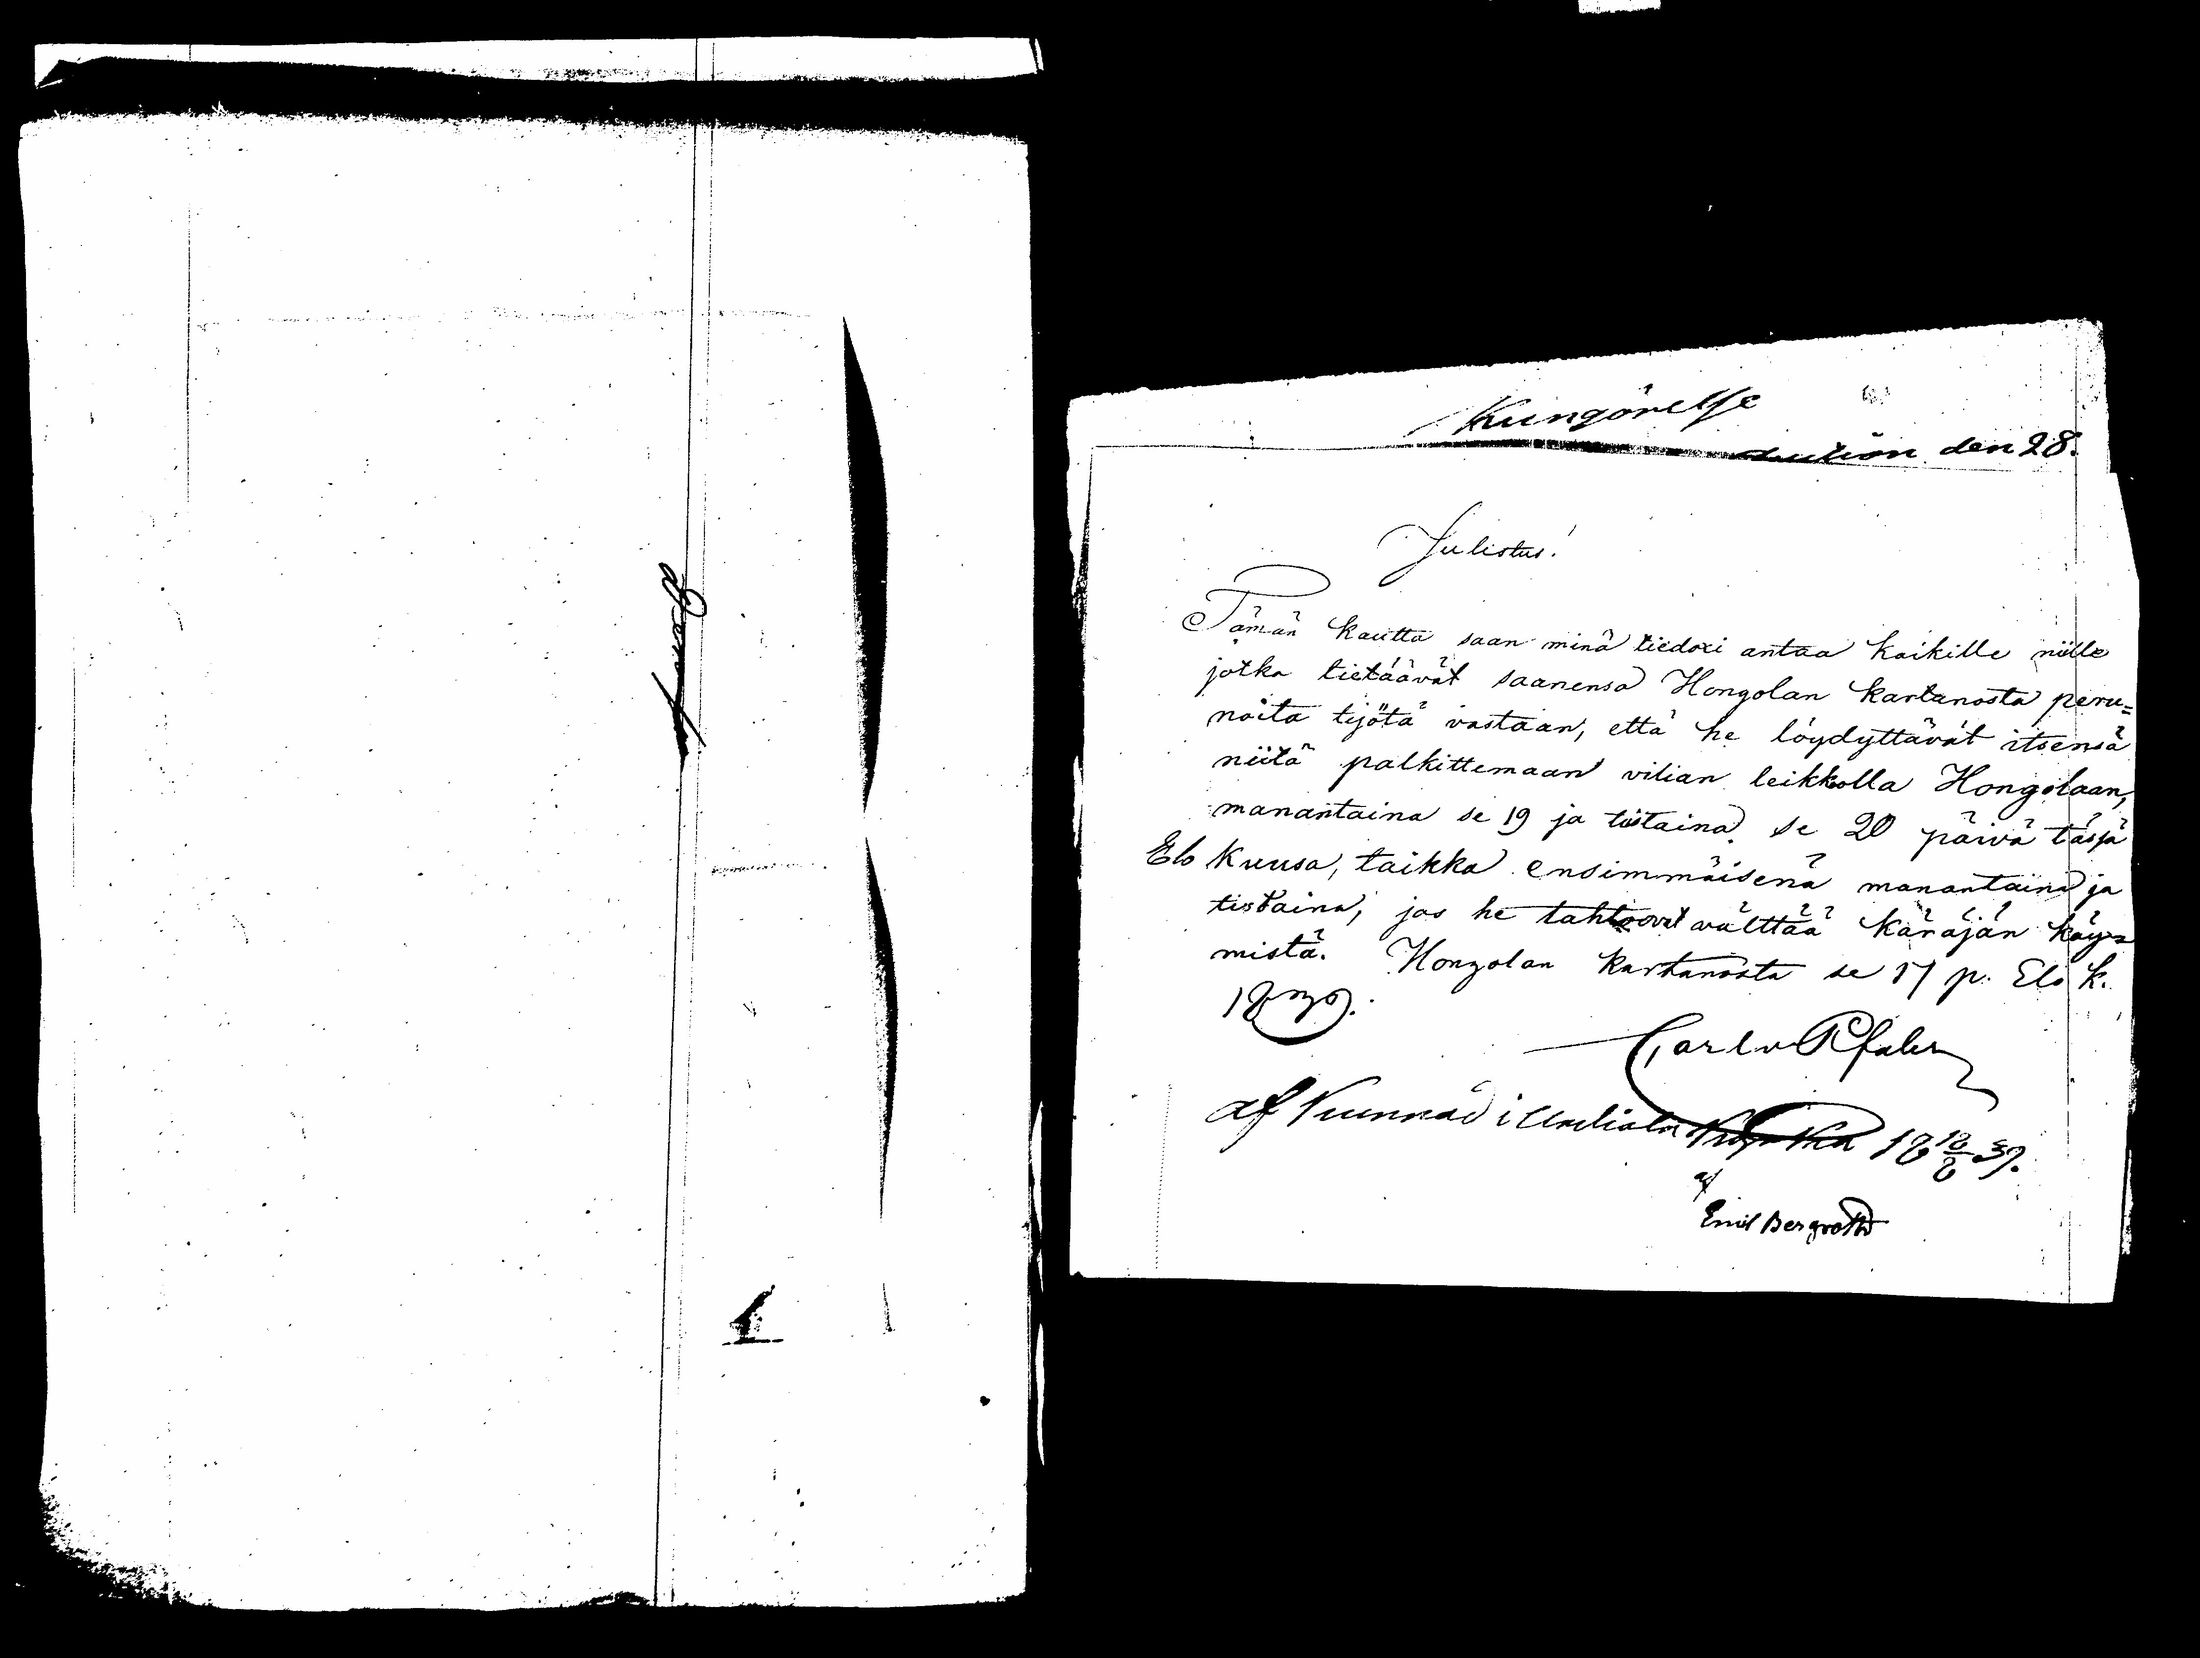 Kungörelse
den 28.
Julistus!
Tämän kautta saan minä tiedoxi antaa kaikille niille
jotka tietäävät saanensa Hongolan kartanosta peru=
noita tijötä vastaan, että he löydyttävät itsensä
niitä palkittemaan vilian leikkolla Hongolaan,
manantaina se 19 ja tistaina se 20 päivä täsjä
Elo Kuusa, taikka ensimmäisenä manantaina ja
tistaina, jos he tahtoovat välttää Käräjän käy=
mistä. Hongolan Kartanosta se 17 p. Elo k.
1839.
Carl v Pfaler
af Kunnad i Urdiala Kyrka 18 18/8 39.
af
Emil Bergroth